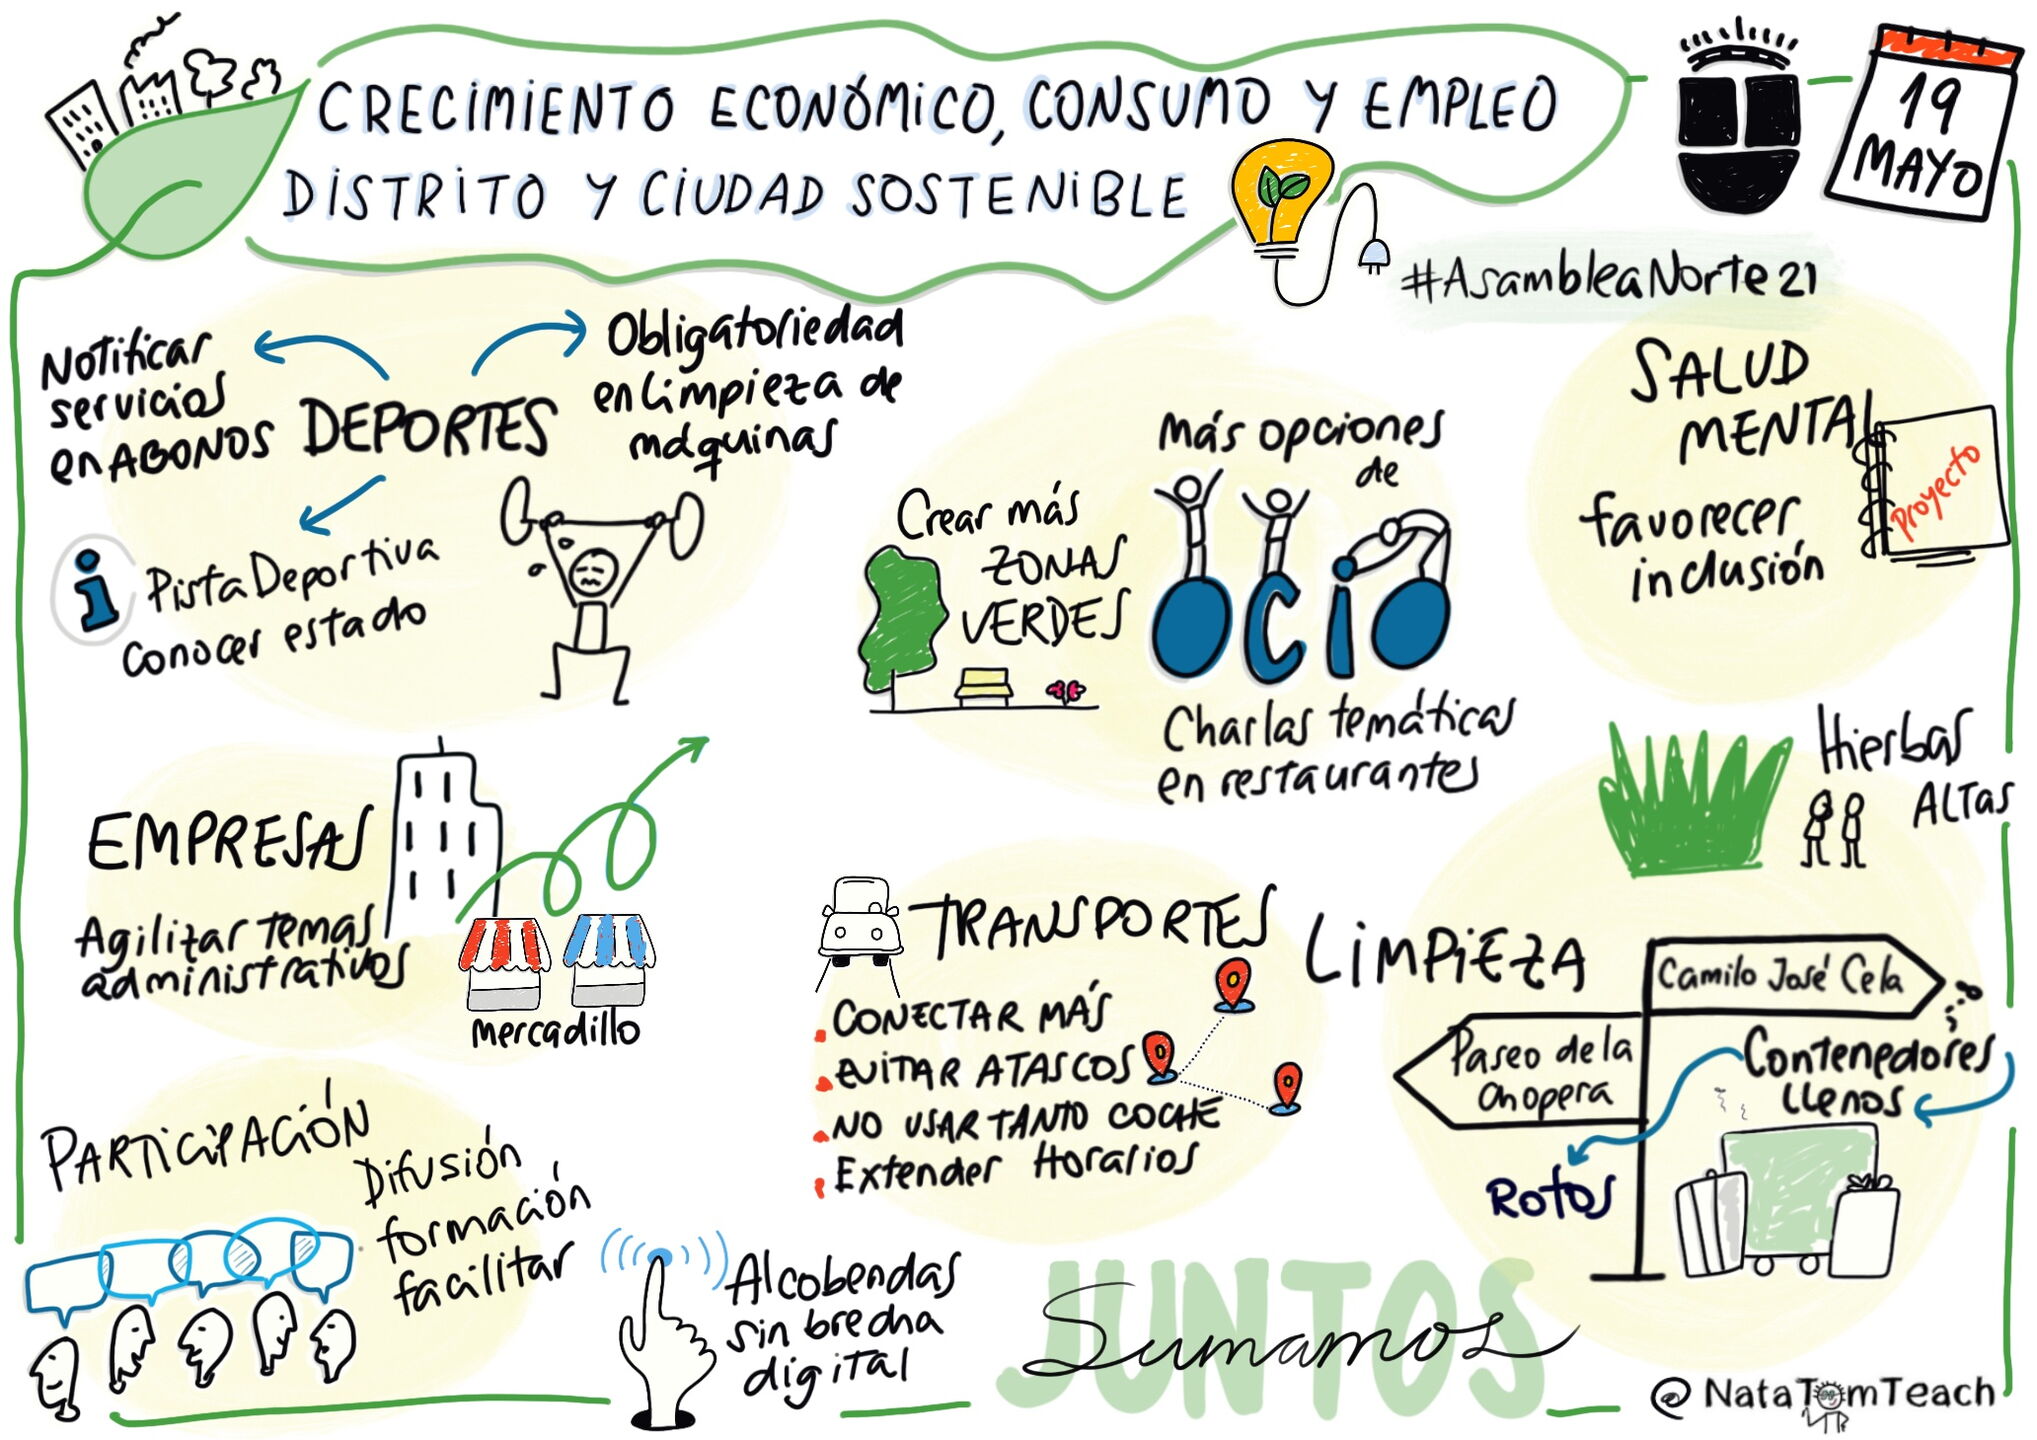 CRECIMIENTO ECONÓMICO, CONSUMO Y EMPLEO
DISTRITO Y CIUDAD SOSTENIBLE
19
MAYO
#AsambleaNorte21
Notificar
servicios
en ABONOS
DEPORTES
Obligatoriedad
en limpieza de
máquinas
i
Pista Deportiva
Conocer estado
Crear más
ZONAS
VERDES
Más opciones
de
OCIO
Charlas temáticas
en restaurantes
SALUD
MENTAL
Proyecto
favorecer
inclusión
Hierbas
ALTAS
EMPRESAS
Agilizar temas
administrativos
mercadillo
TRANSPORTES
CONECTAR MÁS
EVITAR ATASCOS
NO USAR TANTO COCHE
Extender Horarios
LIMPIEZA
Camilo José Cela
Paseo de la
Chopera
Contenedores
LLenos
ROTOS
PARTICIPACIÓN
Difusión
formación
facilitar
Alcobendas
sin brecha
digital
JUNTOS
Sumamos
@NataTomTeach